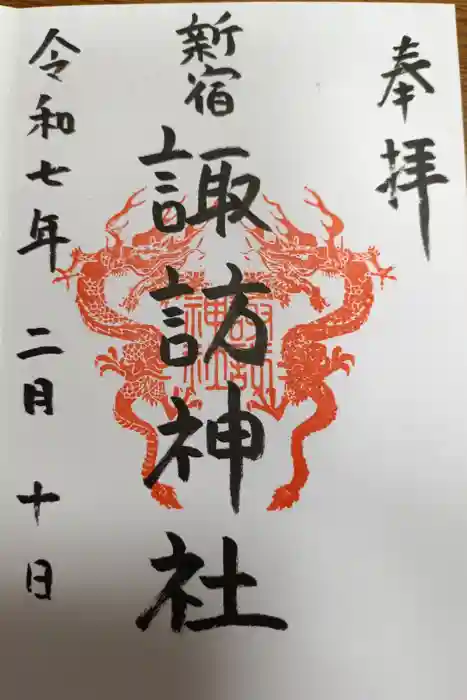 奉拝
新宿
諏訪神社
令和七年 二月 十日